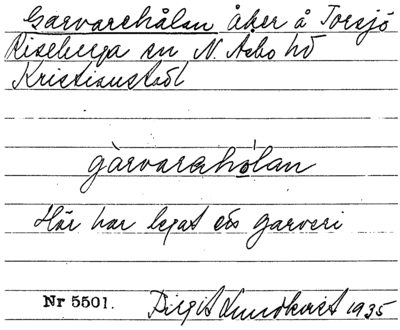 Garvarehålan åker å Torsjö
Riseberga sn N. Åsbo hd
Kristianstads l
gàrvarehólan
Här har legat ett garveri
Nr 5501. Birgit Lundkvist 1935